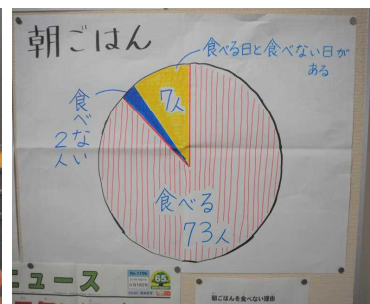 朝ごはん
食べる日と食べない日が
ある
7人
食べない
2人
食べる
73人
ニュース
朝ごはんを食べない理由